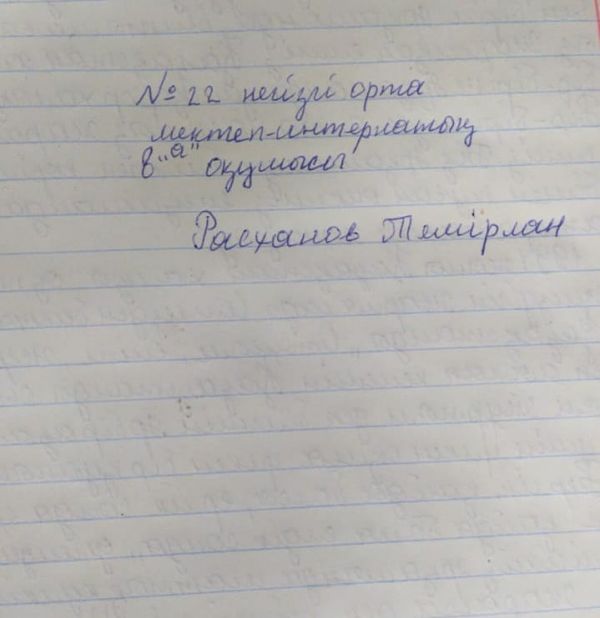 № 22 негізгі орта
мектеп-интернатың
8 "а" оқушысы
Расханов Темірлан